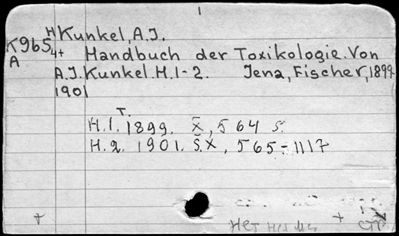 1
Kunkel, A.J.
K965
A
Handbuch der Toxikologie. Von
A.J. Kunkel. H.1-2. Jena, Fischer, 1899
1901
T.
H.1. 1899. X, 564 S.
H.2. 1901. S.X, 565-1117